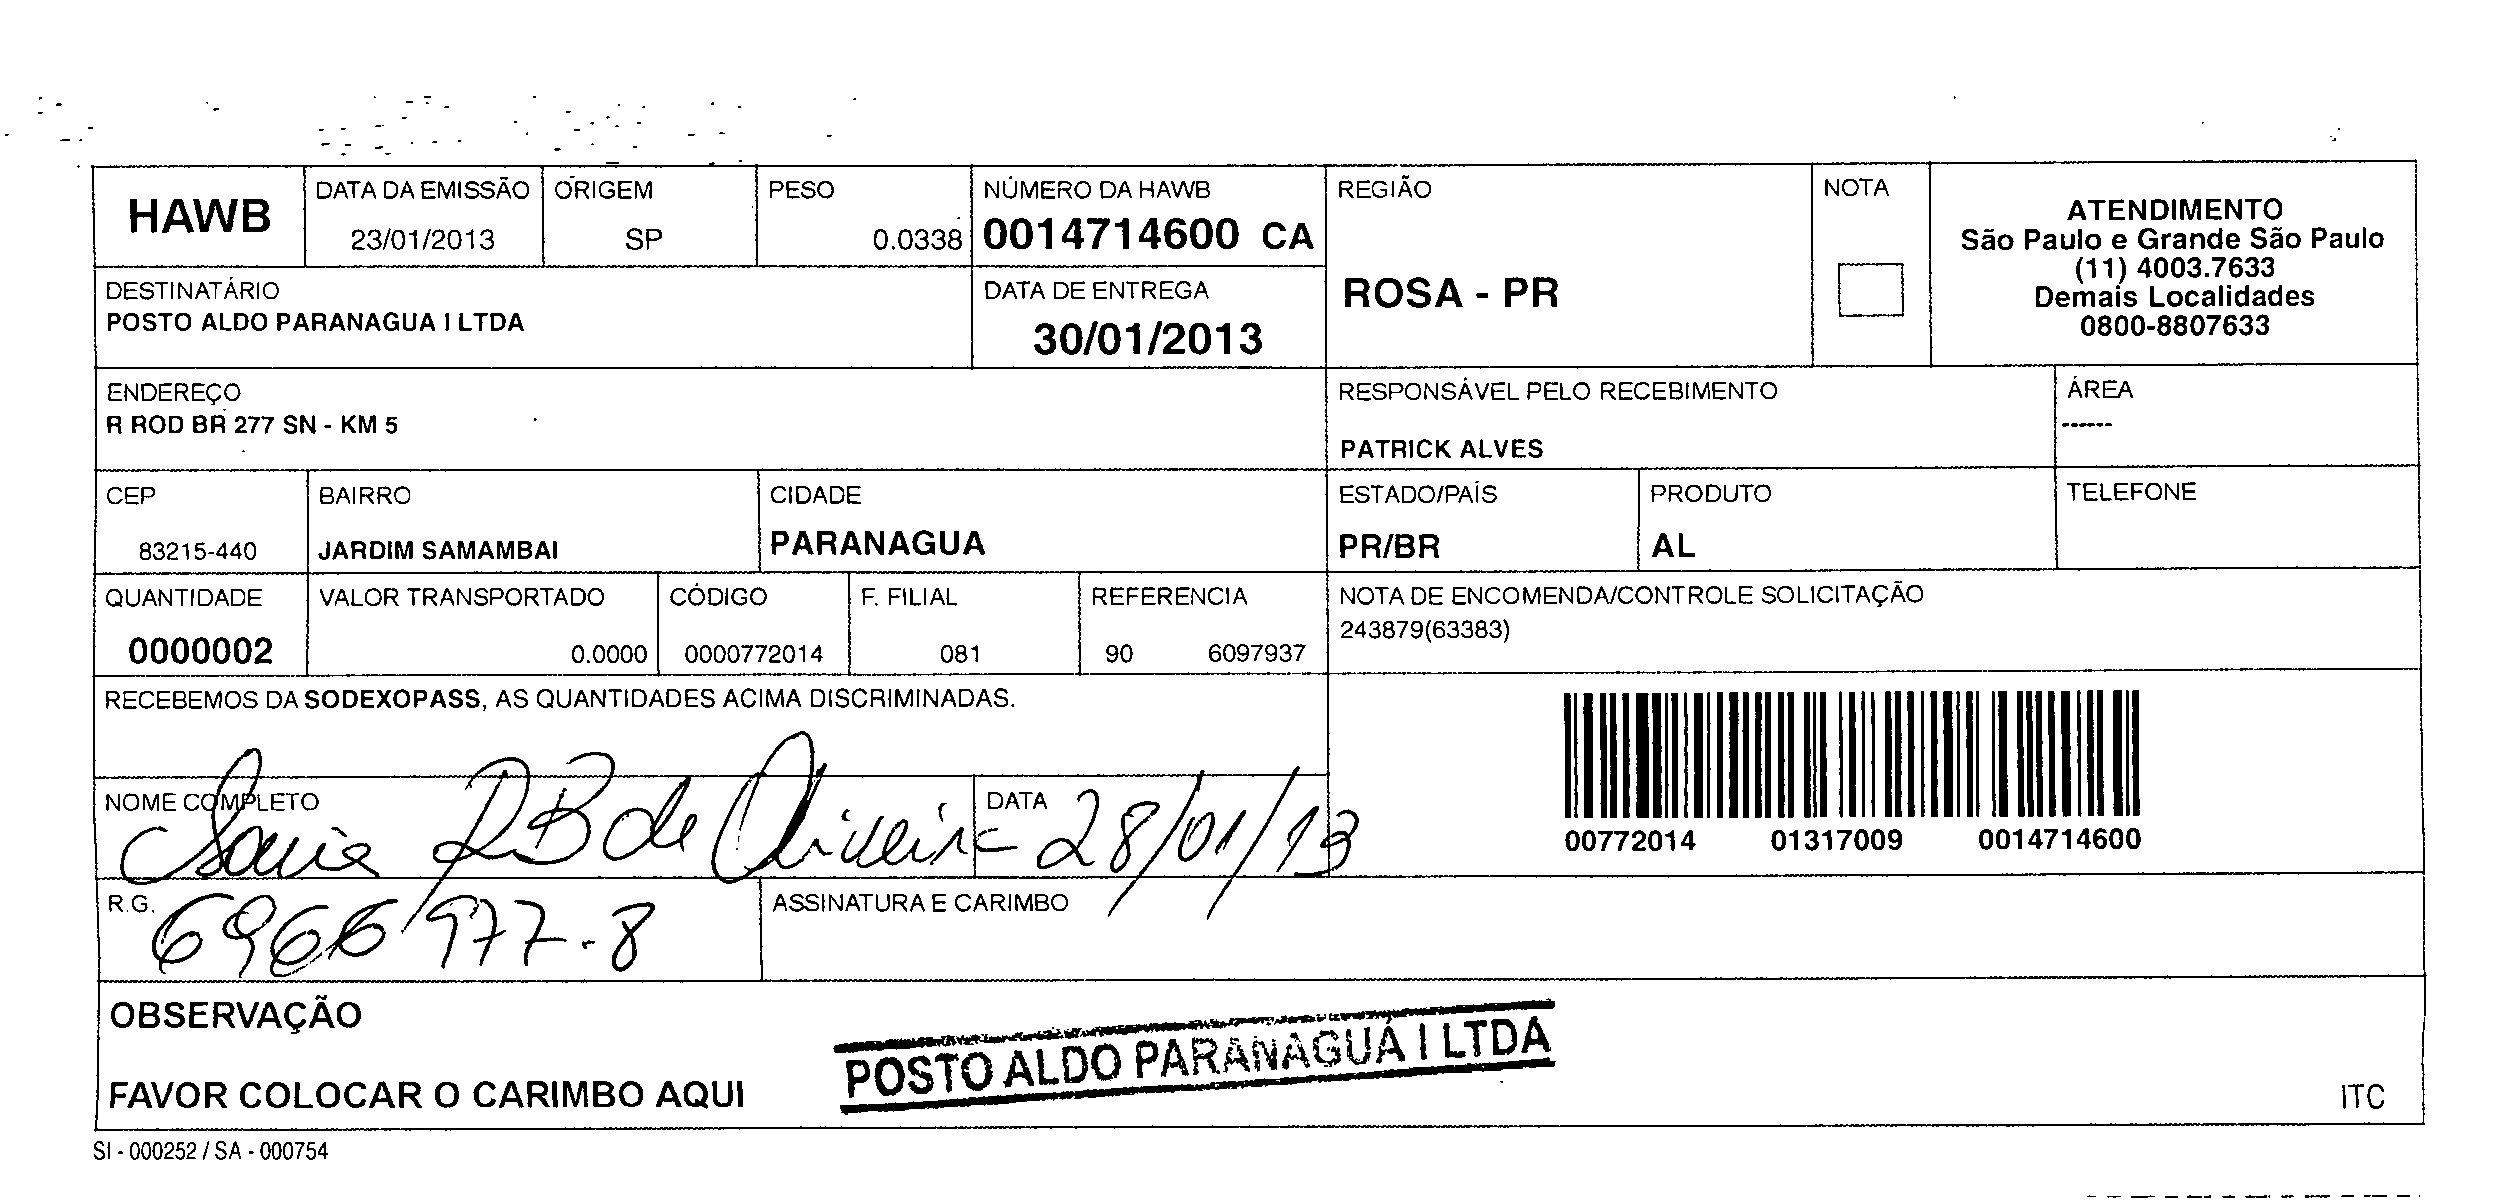 HAWB
DATA DA EMISSÃO
23/01/2013
ORIGEM
SP
PESO
0.0338
NÚMERO DA HAWB
0014714600 CA
REGIÃO
ROSA - PR
NOTA
ATENDIMENTO
São Paulo e Grande São Paulo
(11) 4003.7633
Demais Localidades
0800-8807633
DESTINATÁRIO
POSTO ALDO PARANAGUA I LTDA
DATA DE ENTREGA
30/01/2013
ENDEREÇO
R ROD BR 277 SN - KM 5
RESPONSÁVEL PELO RECEBIMENTO
PATRICK ALVES
ÁREA
------
CEP
83215-440
BAIRRO
JARDIM SAMAMBAI
CIDADE
PARANAGUA
ESTADO/PAÍS
PR/BR
PRODUTO
AL
TELEFONE
QUANTIDADE
0000002
VALOR TRANSPORTADO
0.0000
CÓDIGO
0000772014
F. FILIAL
081
REFERENCIA
90 6097937
NOTA DE ENCOMENDA/CONTROLE SOLICITAÇÃO
243879(63383)
RECEBEMOS DA SODEXOPASS, AS QUANTIDADES ACIMA DISCRIMINADAS.
00772014 01317009 0014714600
NOME COMPLETO
Sonia RB de Oliveira
DATA
28/01/13
R.G.
6966977-8
ASSINATURA E CARIMBO
OBSERVAÇÃO
FAVOR COLOCAR O CARIMBO AQUI
POSTO ALDO PARANAGUÁ I LTDA
ITC
SI - 000252 / SA - 000754